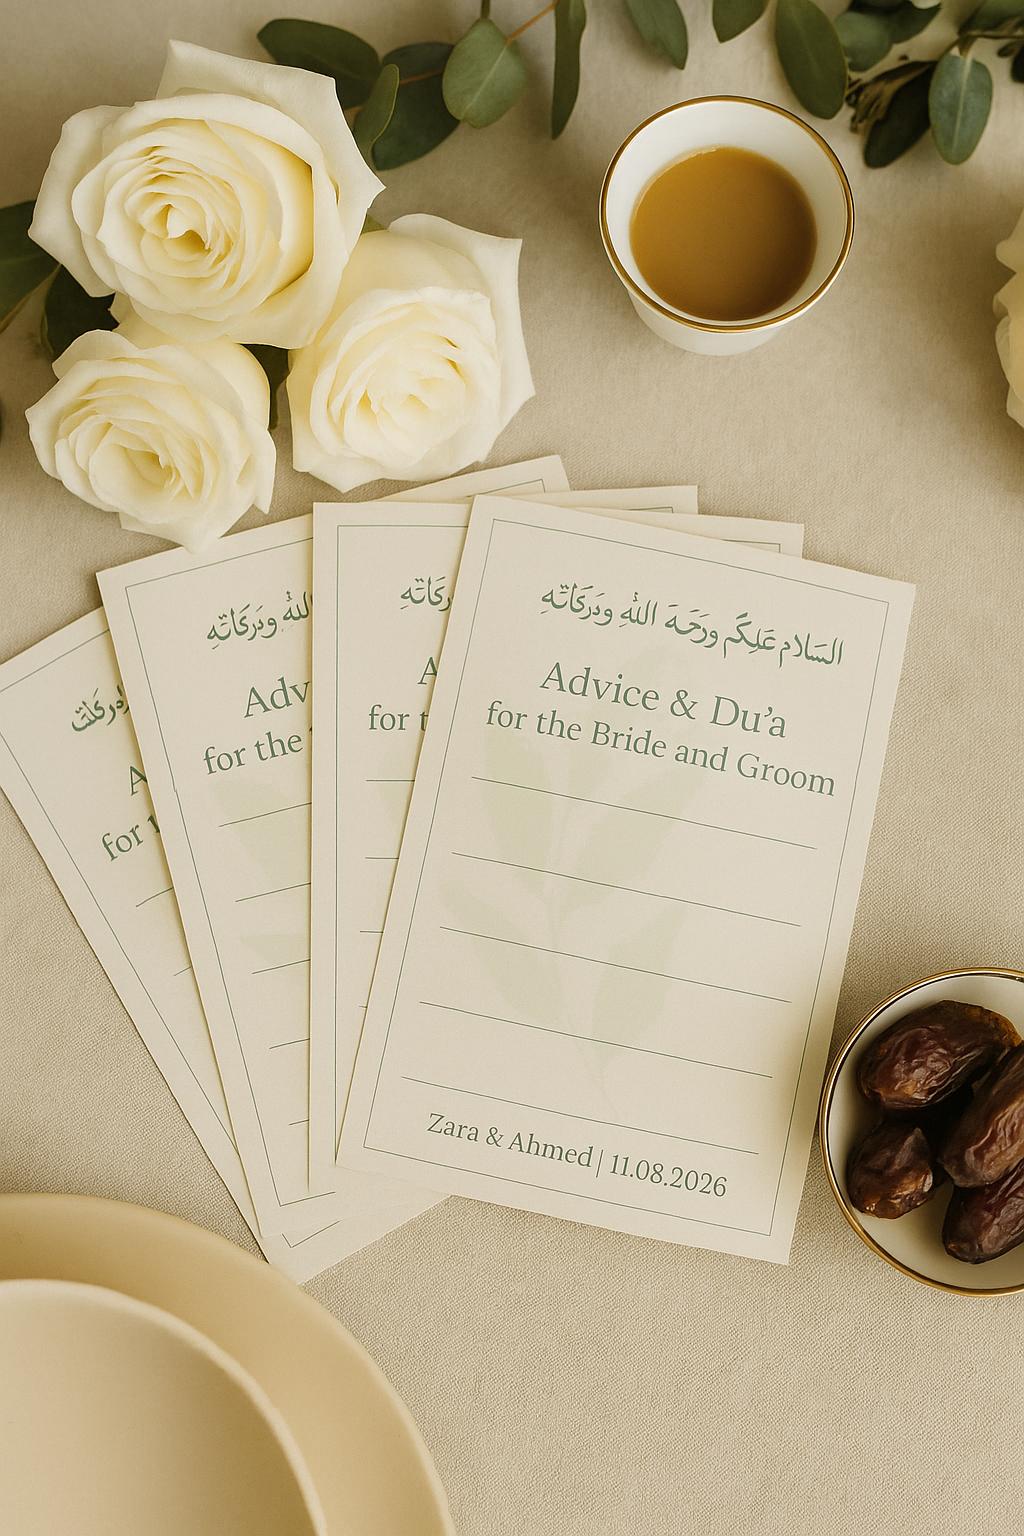 السَلام عَلِكُم ورَحَهَ اللهِ وبَركَاتِهِ
Advice & Du’a
for the Bride and Groom
Zara & Ahmed | 11.08.2026
اللهِ وبَركَاتِهِ
Adv
for the
A
for t
A
for